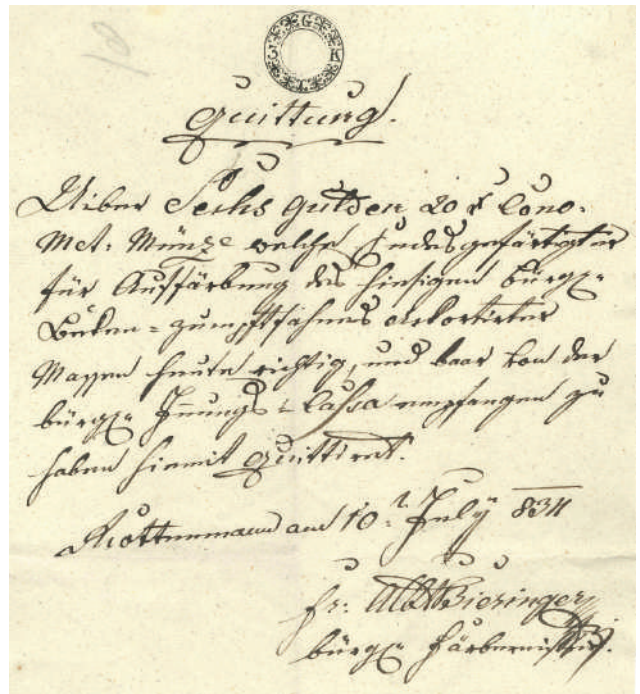 Quittung.
Uiber Sechs Gulden 20 x Conv:
Met: Münze welche Endesgefärtigter
für Auffärbung des hiesigen bürgl:
Beken=zumpftfahnes akortirter
Massen heute richtig, und baar von der
bürgl: Innungs=Cassa empfangen zu
haben hiemit quittiret.
Rottenmann am 10. July 834
Fr: Bieringer
bürgl: Färbermeister.